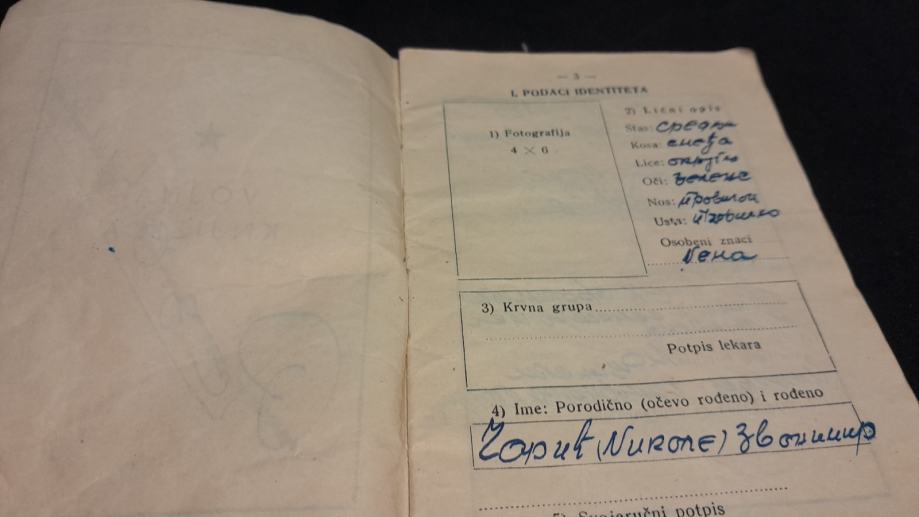 — 3 —
I. PODACI IDENTITETA
1) Fotografija
4 × 6
2) Lični opis
Stas: средњи
Kosa: смеђа
Lice:
Oči: зелене
Nos: правилан
Usta: правилно
Osobeni znaci
Нема
3) Krvna grupa
Potpis lekara
4) Ime: Porodično (očevo rođeno) i rođeno
(Николе) Звонимир
5) Svojeručni potpis